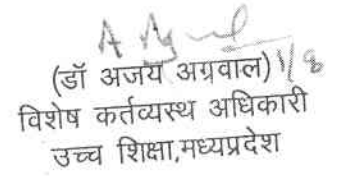 (डॉ अजय अग्रवाल) 1/8
विशेष कर्तव्यस्थ अधिकारी
उच्च शिक्षा,मध्यप्रदेश